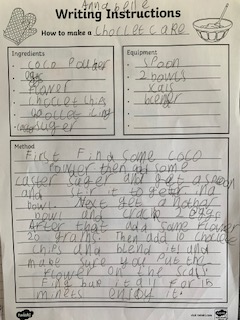 Annabelle
Writing Instructions
How to make a Choclet cake
Ingredients
Equipment
coco Powder
egg
Flower
Choclet chips
suger
spoon
2 bowls
blender
Method
First Find some coco
Power then add some
caster suger and get a spoon
and stir it together in a
bowl. Next get a nother
bowl and crack 2 eggs
After that add some Flower
20 grams. Then add the choclet
chips and blend it and
make sure you put the
Flower on the scals
it all for 15
minets enjoy it.
twinkl